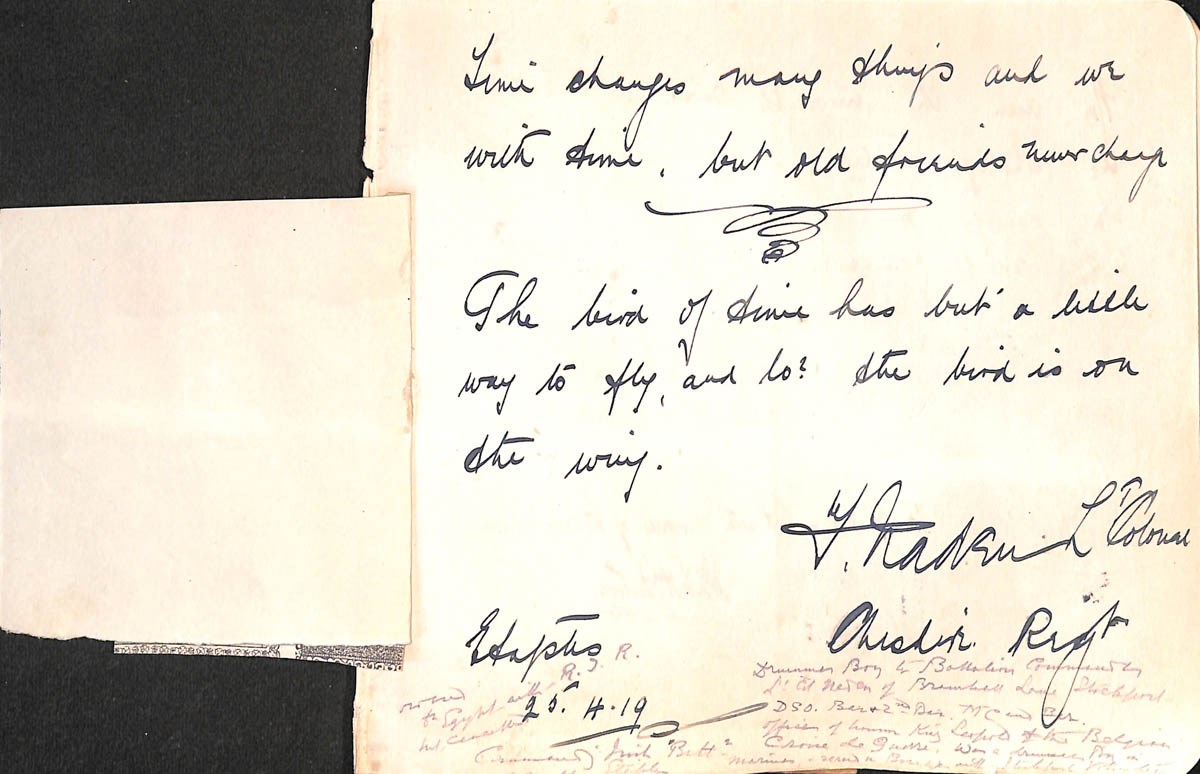 Time changes many things and we
with time, but old friends never change
The bird of time has but a little
way to fly, and lo? the bird is on
the wing.
Lt Colonel
Etaples
Cheshire Regt
25.4.19
R. I. R.
Drummer Boy to Battalion Commander
Lt Col Naden of Bramhall Lane Stockport
DSO. Bar & 2nd Bar. MC and Bar.
officer of honour King Leopold of the Belgian
Croix de Guerre. Was a drummer boy in
to Egypt with
Irish
marines